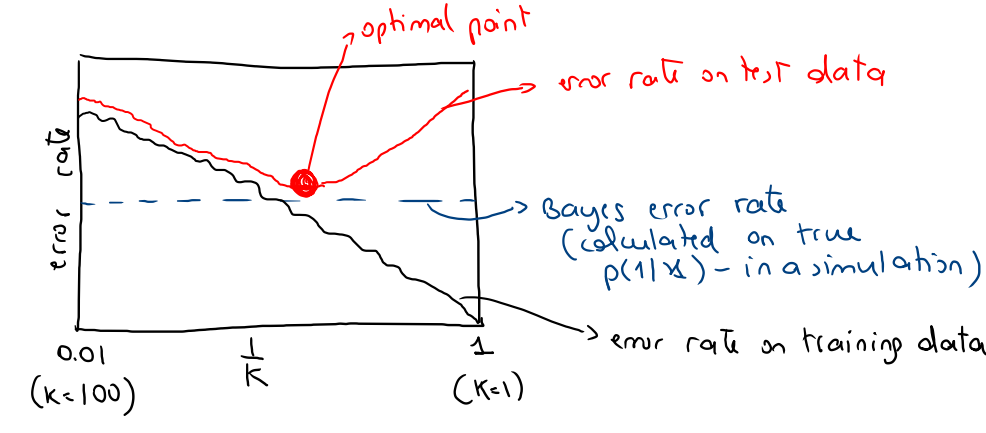 optimal point
error rate on test data
error rate
Bayes error rate
(calculated on true
p(1|x) - in a simulation)
error rate on training data
0.01
1/K
1
(K=100)
(K=1)